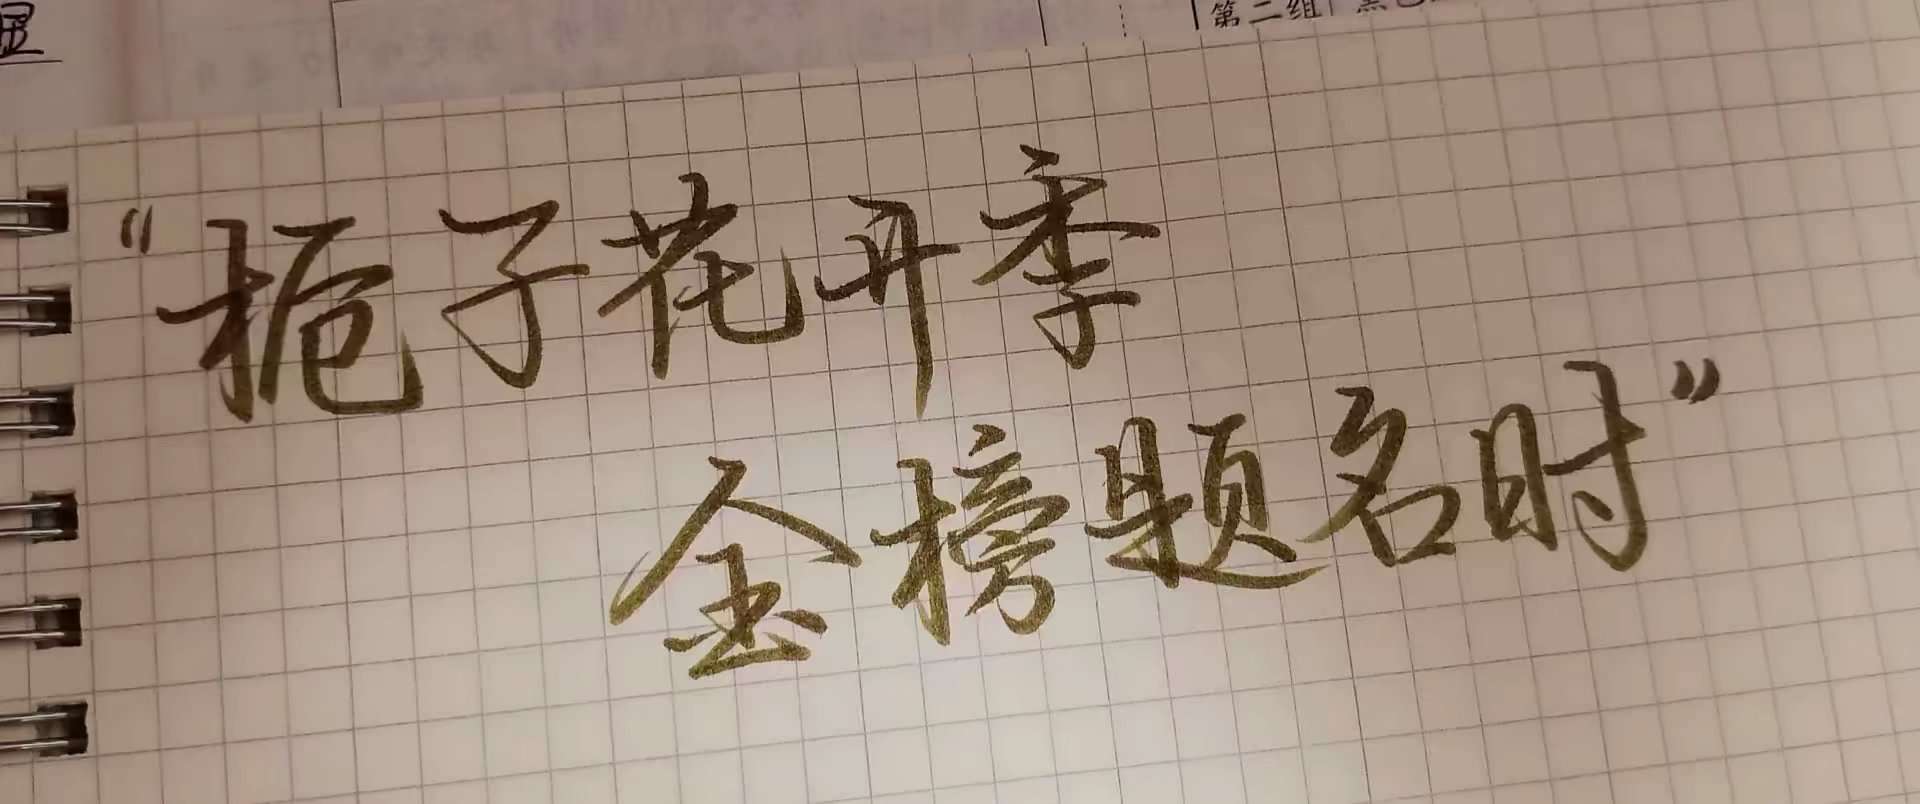 第二组
“栀子花开季
金榜题名时”